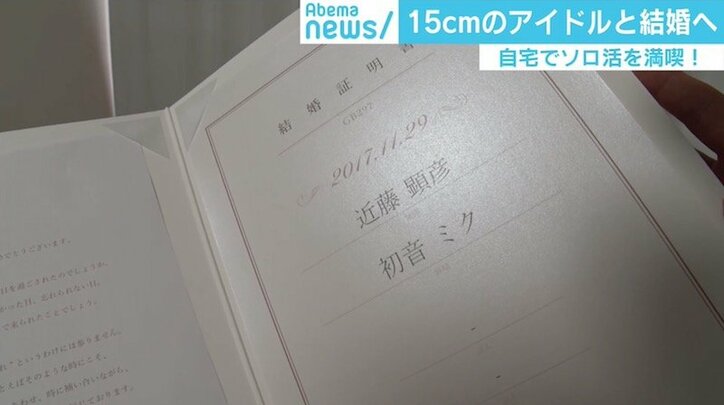 Abema
news/
15cmのアイドルと結婚へ
自宅でソロ活を満喫！
結婚証明書
GB297
2017.11.29
近藤 顕彦
初音 ミク
でとうございます。
日を過ごされたのでしょうか。
かった日、忘れられない日。
で来られたことでしょう。
れ"というわけには参りません。
とえばそのような時にこそ、
あわせ、時に補い合いながら、
ております。